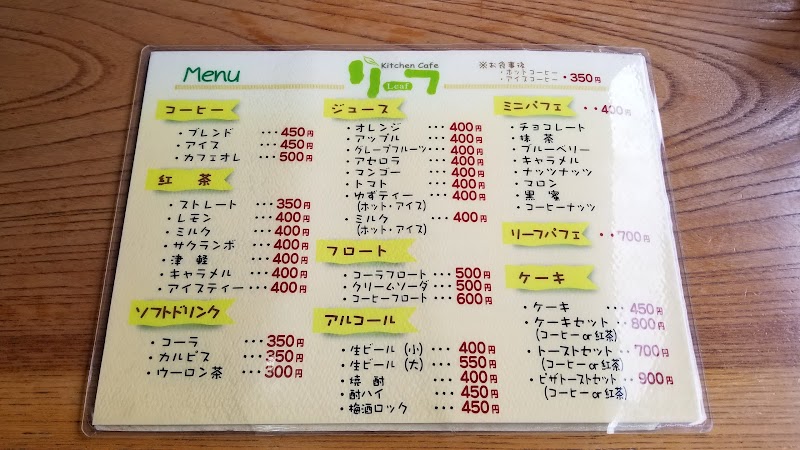 Menu
Kitchen Cafe
リーフ
Leaf
※お食事後
・ホットコーヒー
・アイスコーヒー ・350円
コーヒー
・ブレンド ・・・450円
・アイス ・・・450円
・カフェオレ ・・・500円
紅茶
・ストレート ・・・350円
・レモン ・・・400円
・ミルク ・・・400円
・サクランボ ・・・400円
・津軽 ・・・400円
・キャラメル ・・・400円
・アイスティー ・・・400円
ソフトドリンク
・コーラ ・・・350円
・カルピス ・・・350円
・ウーロン茶 ・・・300円
ジュース
・オレンジ ・・・400円
・アップル ・・・400円
・グレープフルーツ ・・・400円
・アセロラ ・・・400円
・マンゴー ・・・400円
・トマト ・・・400円
・ゆずティー ・・・400円
(ホット・アイス)
・ミルク ・・・400円
(ホット・アイス)
フロート
・コーラフロート ・・・500円
・クリームソーダ ・・・500円
・コーヒーフロート ・・・600円
アルコール
・生ビール (小) ・・・400円
・生ビール (大) ・・・550円
・焼酎 ・・・400円
・酎ハイ ・・・450円
・梅酒ロック ・・・450円
ミニパフェ ・・400円
・チョコレート
・抹茶
・ブルーベリー
・キャラメル
・ナッツナッツ
・マロン
・黒蜜
・コーヒーナッツ
リーフパフェ ・・700円
ケーキ
・ケーキ ・・・450円
・ケーキセット ・・800円
(コーヒー or 紅茶)
・トーストセット ・・700円
(コーヒー or 紅茶)
・ピザトーストセット ・・900円
(コーヒー or 紅茶)